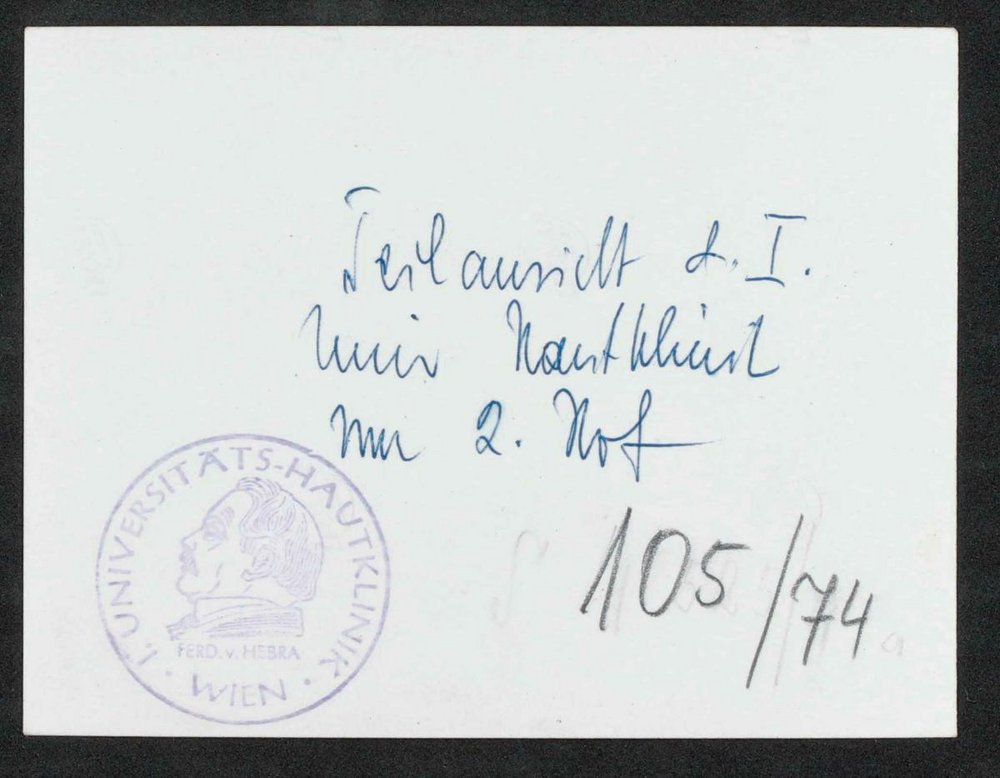 Teilansicht d. I.
Univ Hautklinik
2. Hof
105/74
I. UNIVERSITÄTS-HAUTKLINIK
FERD. v. HEBRA
· WIEN ·